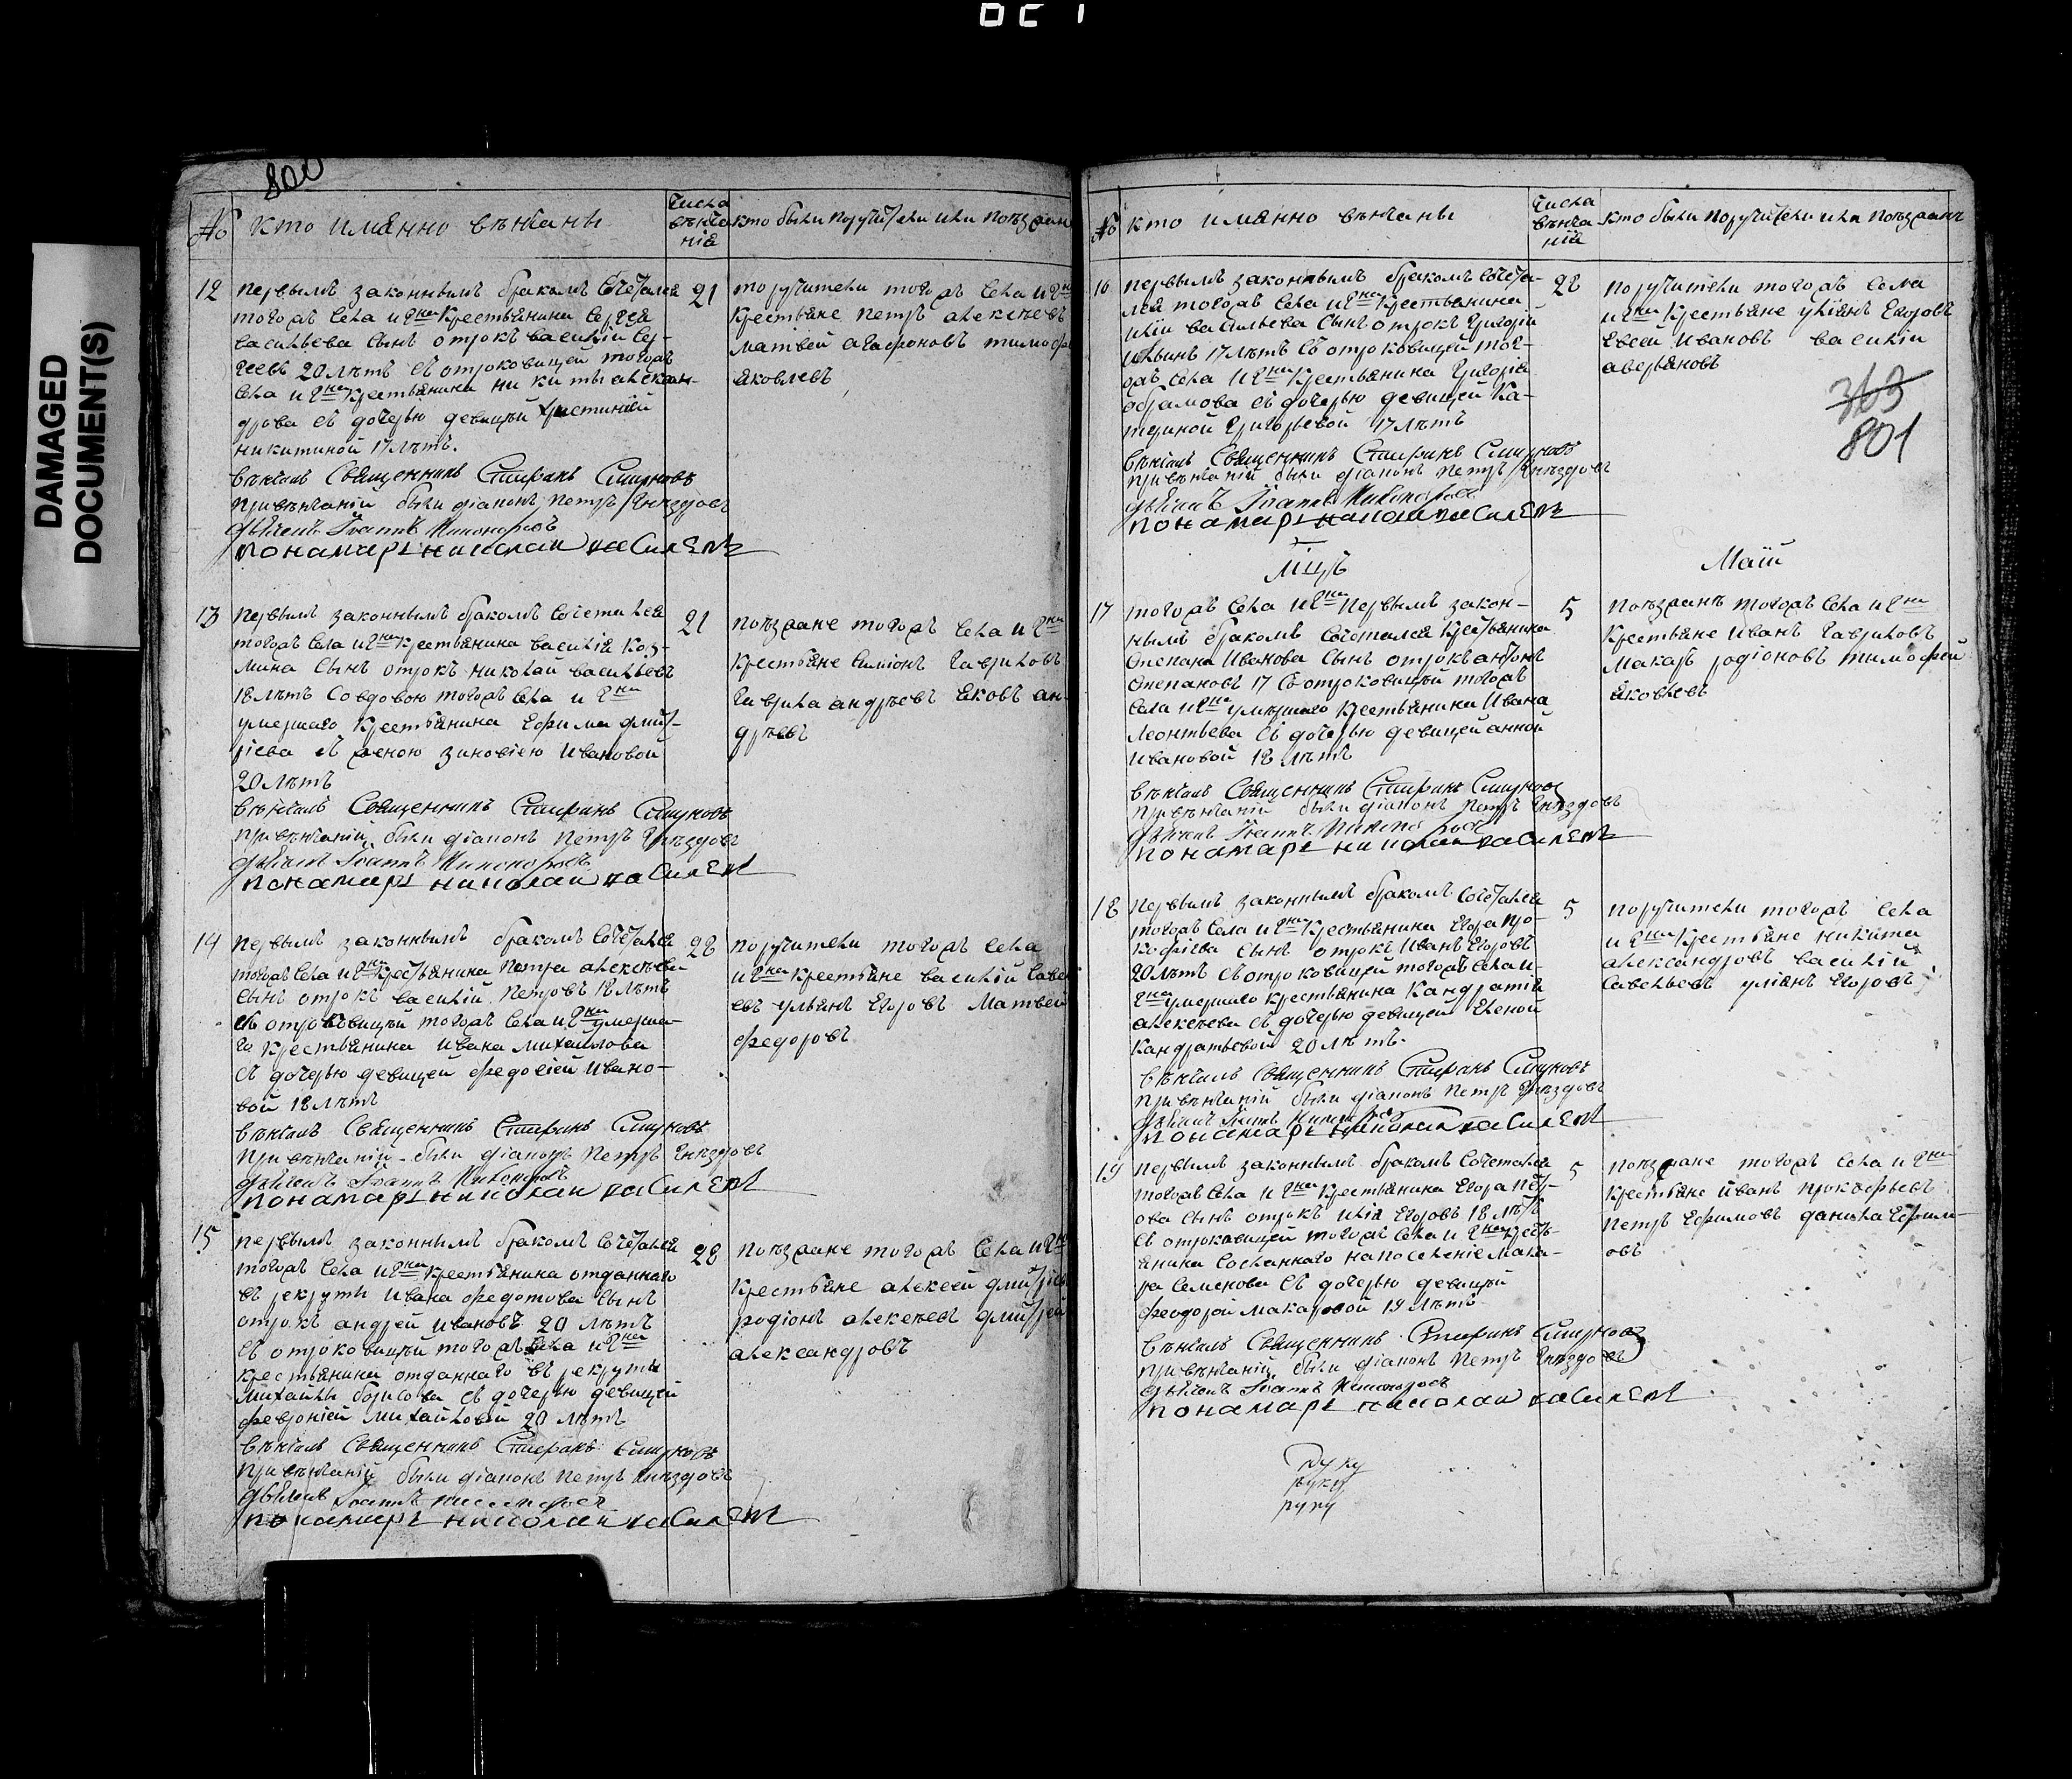 DAMAGED
DOCUMENT(S)
800
№ Кто имянно вѣнчаны
Числа вѣнчанія
кто были поручители или поѣзжан
12 первымъ законнымъ бракомъ сочетался 21
тогожъ села и Гжи крестьянина Сергея
васильева сынъ отрокъ василій Сер-
геевъ 20 лѣтъ съ отроковицей тогожъ
села и Гжи крестьянина никиты алексан-
дрова съ дочерью девицей христиніей
никитиной 17 лѣтъ.
вѣнчалъ Священникъ Смирновъ
при вѣнчаніи были діаконъ Петръ Гнѣздовъ
дьячекъ Іоаннъ Никоноровъ
понамарь николаи василевъ
поручители тогожъ села и Гжи
крестьяне петръ алексѣевъ
матвей агафоновъ тимофѣ
яковлевъ
13 первымъ законнымъ бракомъ сочетался 21
тогожъ села и Гжи крестьянина василія Коз-
мина сынъ отрокъ николай васильевъ
18 лѣтъ со вдовою тогожъ села и Гжи
умершаго крестьянина Ефима дмит-
ріева съ женою зиновіею ивановой
20 лѣтъ
вѣнчалъ Священникъ Смирновъ
при вѣнчаніи были діаконъ Петръ Гнѣздовъ
дьячекъ Іоаннъ Никоноровъ
понамарь николаи василевъ
поѣзжане тогожъ села и Гжи
крестьяне симіонъ гавриловъ
гаврила андрѣевъ яковъ ан-
дрѣевъ
14 первымъ законнымъ бракомъ сочетался 28
тогожъ села и Гжи крестьянина петра алексѣева
сынъ отрокъ василій петровъ 18 лѣтъ
съ отроковицей тогожъ села и Гжи умерша-
го крестьянина ивана михайлова
съ дочерью девицей федосіей ивано-
вой 18 лѣтъ
вѣнчалъ Священникъ Смирновъ
при вѣнчаніи были діаконъ Петръ Гнѣздовъ
дьячекъ Іоаннъ Никоноровъ
понамарь николаи василевъ
поручители тогожъ села
и Гжи крестьяне василій савел
евъ ульянъ Егоровъ Матвей
федоровъ
15 первымъ законнымъ бракомъ сочетался 28
тогожъ села и Гжи крестьянина отданнаго
въ рекруты ивана федотова сынъ
отрокъ андрей ивановъ 20 лѣтъ
съ отроковицей тогожъ села и Гжи
крестьянина отданнаго въ рекруты
михайлы борисова съ дочерью девицей
февроніей михайловой 20 лѣтъ
вѣнчалъ Священникъ Смирновъ
при вѣнчаніи были діаконъ Петръ Гнѣздовъ
дьячекъ Іоаннъ
понамарь николаи василевъ
поѣзжане тогожъ села и Гжи
крестьяне алексей дмитріев
родіонъ алексѣевъ дмитрей
александровъ
№ кто имянно вѣнчаны
Числа вѣнчанія
кто были поручители или поѣзжанѣ
363
801
16 первымъ законнымъ бракомъ сочета- 28
лся тогожъ села и Гжи крестьянина
иліи васильева сынъ отрокъ григорій
ильинъ 17 лѣтъ съ отроковицей тог-
ожъ села и Гжи крестьянина григорія
абрамова съ дочерью девицей Ка-
териной григорьевой 17 лѣтъ
вѣнчалъ Священникъ Смирновъ
при вѣнчаніи были діаконъ Петръ Гнѣздовъ
дьячекъ Іоаннъ Никоноровъ
понамарь николаи василевъ
поручители тогожъ села
и Гжи крестьяне ульянъ Егоровъ
Евсей ивановъ василій
аверьяновъ
Мцъ Маій
17 тогожъ села и Гжи первымъ закон- 5
нымъ бракомъ сочетался крестьянина
степана иванова сынъ отрокъ антонъ
степановъ 17 съ отроковицей тогожъ
села и Гжи умѣршаго крестьянина ивана
леонтьева съ дочерью девицей анной
ивановой 18 лѣтъ
вѣнчалъ Священникъ Смирновъ
при вѣнчаніи были діаконъ Петръ Гнѣздовъ
дьячекъ Іоаннъ
понамарь николаи василевъ
поѣзжанѣ тогожъ села и Гжи
крестьяне иванъ гавриловъ
макаръ родіоновъ тимофей
яковлевъ
18 первымъ законнымъ бракомъ сочетался 5
тогожъ села и Гжи крестьянина Егора про-
кофьева сынъ отрокъ иванъ Егоровъ
20 лѣтъ съ отроковицей тогожъ села и-
Гжи умершаго крестьянина Кандратія
алексѣева съ дочерью девицей Еленой
Кандратьевой 20 лѣтъ.
вѣнчалъ Священникъ Смирновъ
при вѣнчаніи были діаконъ Петръ Гнѣздовъ
дьячекъ Іоаннъ
понамарь николаи василевъ
поручители тогожъ села
и Гжи крестьяне никита
александровъ василій
савельевъ ульянъ Егоровъ
19 первымъ законнымъ бракомъ сочетался 5
тогожъ села и Гжи крестьянина Егора пет-
ова сынъ отрокъ илія Егоровъ 18 лѣтъ
съ отроковицей тогожъ села и Гжи кресть-
янина сосланнаго на поселеніе мака-
ра семенова съ дочерью девицей
феодорой макаровой 19 лѣтъ
вѣнчалъ Священникъ Смирновъ
при вѣнчаніи были діаконъ Петръ Гнѣздовъ
дьячекъ Іоаннъ Никоноровъ
понамарь николаи василевъ
поѣзжане тогожъ села и Гжи
крестьяне иванъ прокофьевъ
петръ Ефимовъ данила Ефим-
овъ
руку
руку
руку